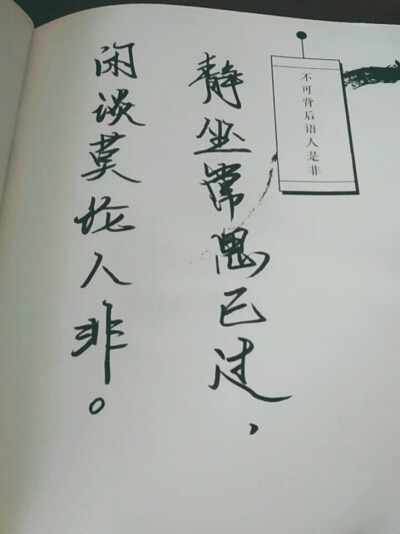 不可背后语人是非
静坐常思己过，
闲谈莫论人非。